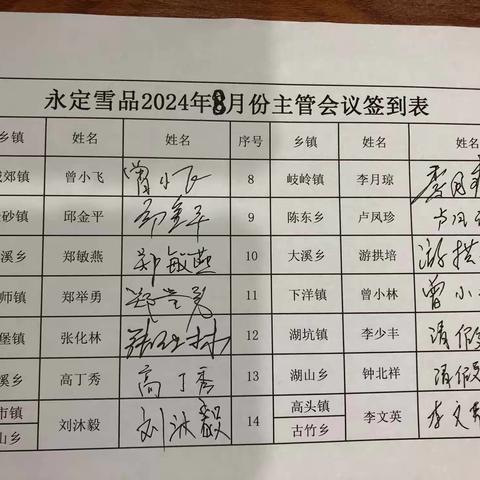 永定雪品2024年8月份主管会议签到表
乡镇 姓名 姓名 序号 乡镇 姓名 姓名
城郊镇 曾小飞 曾小飞 8 岐岭镇 李月琼 李月
砂镇 邱金平 邱金平 9 陈东乡 卢凤珍 卢凤
溪乡 郑敏燕 郑敏燕 10 大溪乡 游拱培 游拱
师镇 郑举勇 郑举勇 11 下洋镇 曾小林 曾小
堡镇 张化林 张化林 12 湖坑镇 李少丰 请假
溪乡 高丁秀 高丁秀 13 湖山乡 钟北祥 请假
市镇 刘沐毅 刘沐毅 14 高头镇 李文英 李文英
山乡 古竹乡